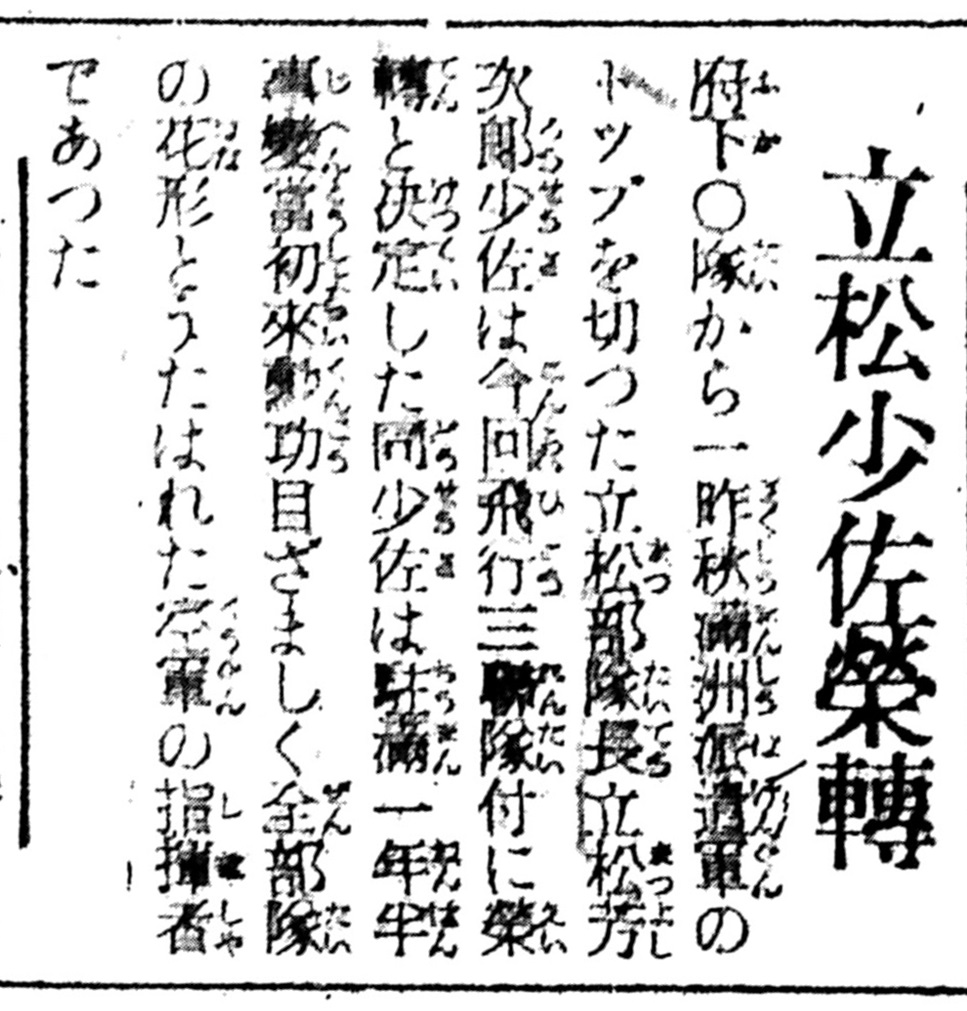 立松少佐榮轉
府下〇隊から一昨秋滿洲派遣軍の
トツプを切つた立松部隊長立松芳
次郎少佐は今回飛行三聯隊付に榮
轉と決定した同少佐は駐滿一年半
事變當初來勳功目ざましく全部隊
の花形とうたはれた空軍の指揮者
であつた